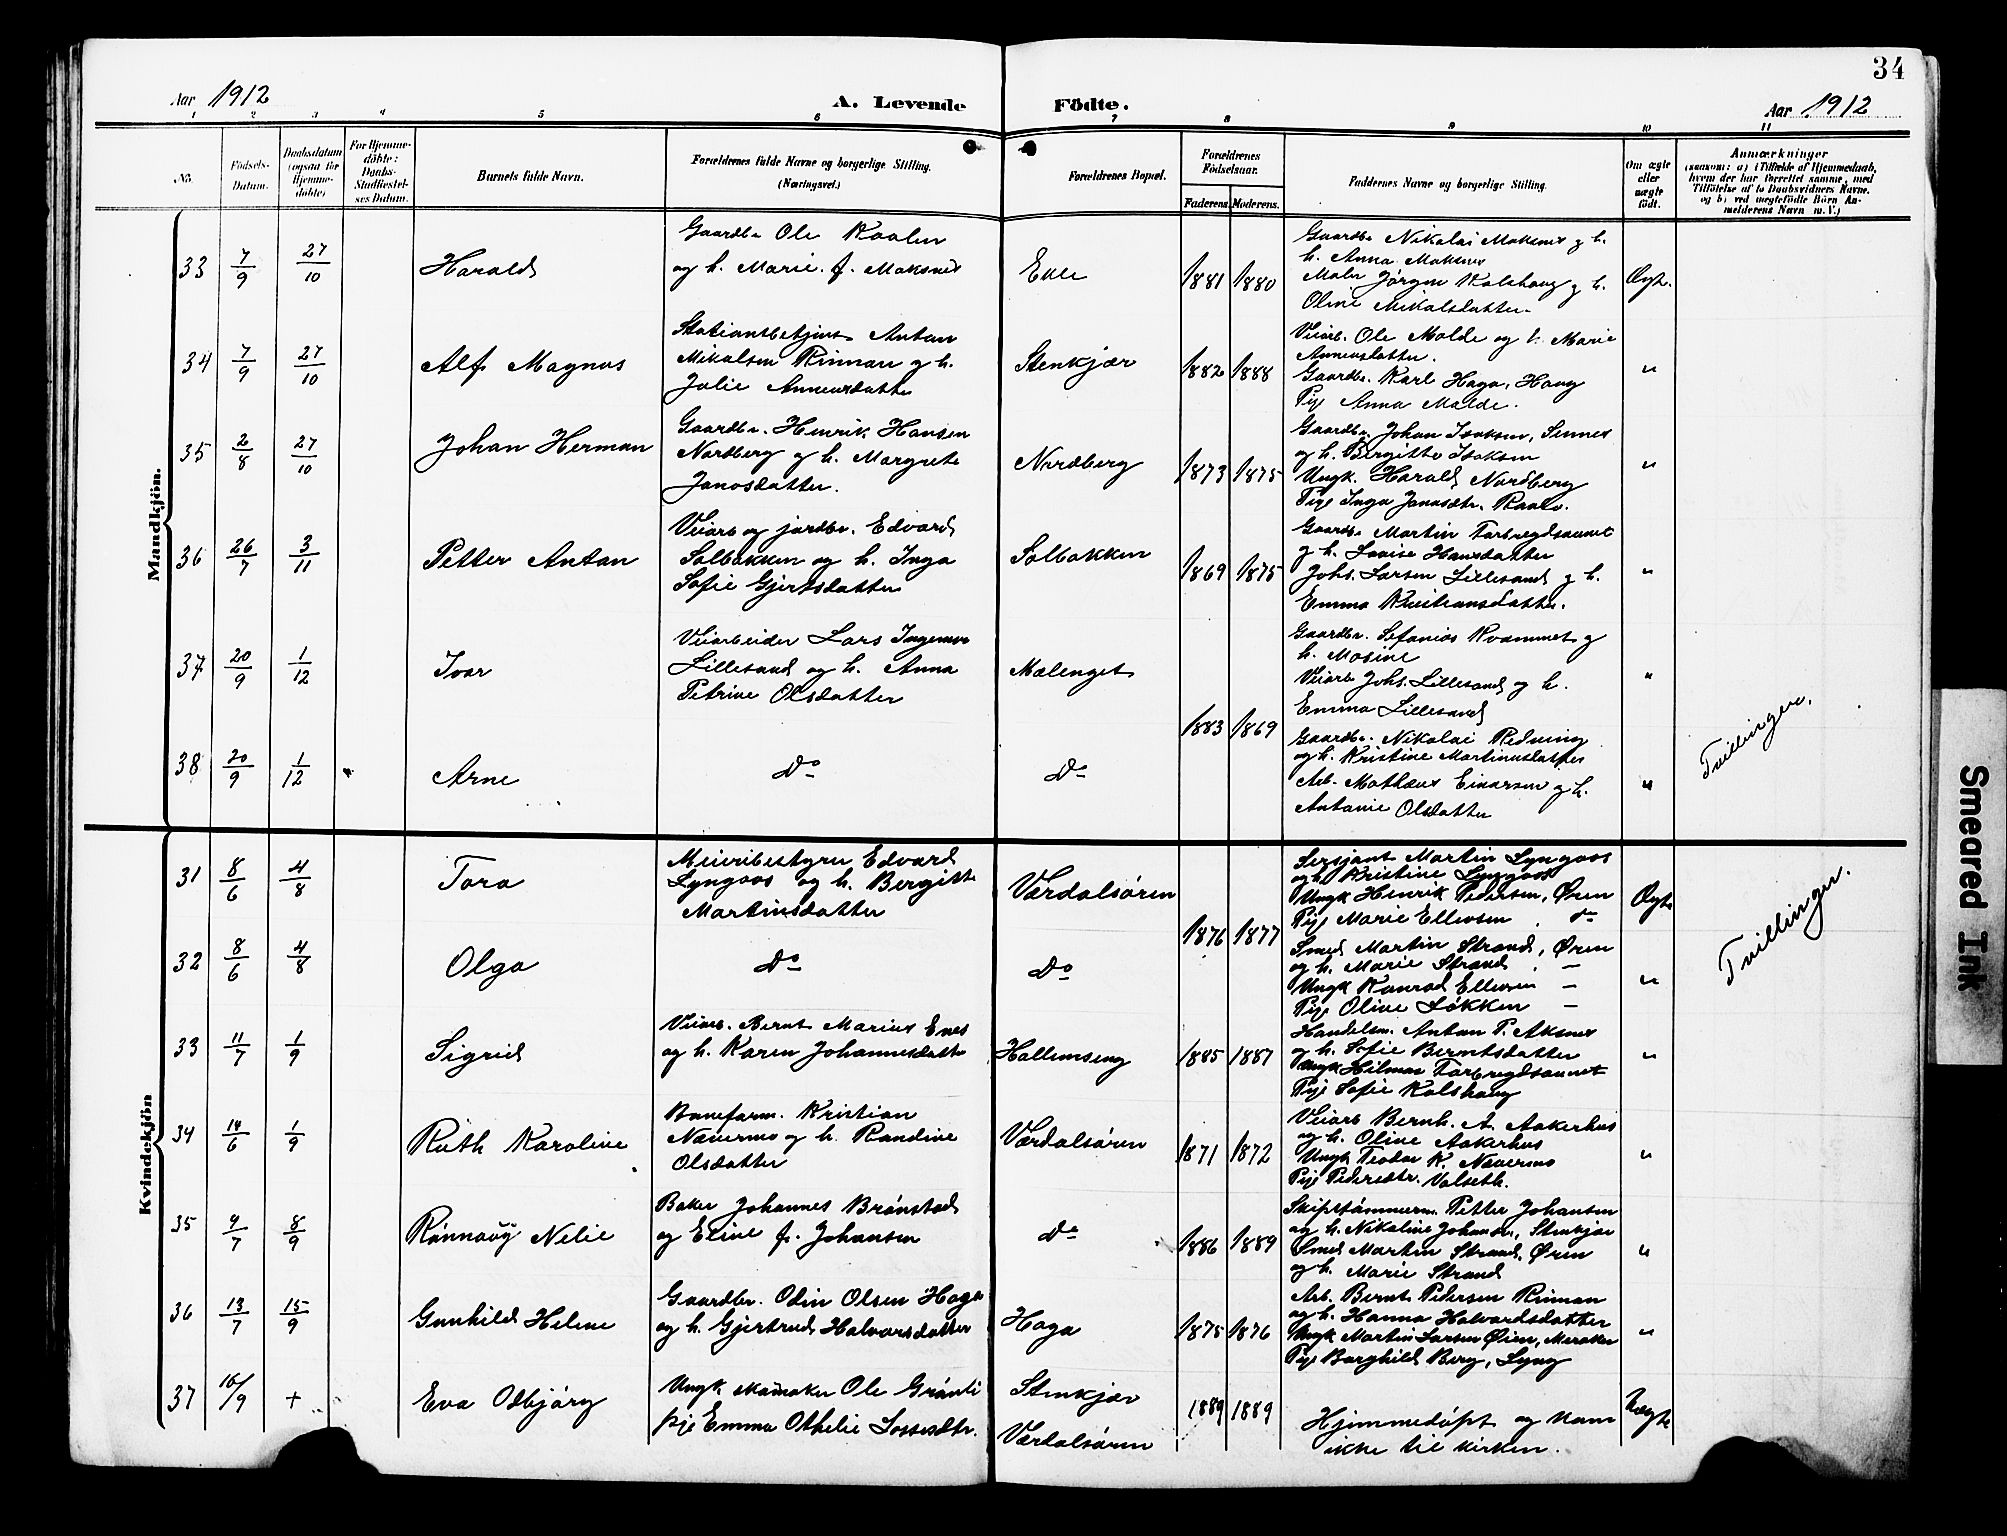 34
Aar 1912
A. Levende Födte.
Aar 1912
1 2 3 4 5 6 7 8 9 10 11
No.
Födsels-
Datum.
Daabsdatum
(ogsaa for
Hjemme-
döbte)
For Hjemme-
döbte:
Daabs-
Stadfæstel-
ses Datum.
Barnets fulde Navn.
Forældrenes fulde Navne og borgerlige Stilling.
(Næringsvei.)
Forældrenes Bopæl.
Forældrenes
Födselsaar.
Faderens. Moderens.
Faddernes Navne og borgerlige Stilling.
Om ægte
eller
uægte
födt.
Anmærkninger
(saasom: a) i Tilfælde af Hjemmedaab,
hvem der har forrettet samme, med
Tilföielse af to Daabsvidners Navne.
og b) ved uægtefödte Börn An-
melderens Navn m. V.)
Mandkjön.
33 7/9 27/10 Harald
Gaardbr Ole Kaalen
og h. Marie f. Maksnes
Ekle 1881 1880
Gaardbr Nikolai Maksnes g h.
h. Anna Maksnes
Maler Jørgen Kalshaug g h.
Oline Mikalsdatter.
Ægt.
34 7/9 27/10 Alf Magnus
Stationsbetjent Anton
Mikalsen Rinnan g h.
Julie Anneusdatter
Stenkjær 1882 1888
Veiarb. Ole Molde og h. Marie
Anneusdatter.
Gaardbr. Karl Haga, Haug
Pige Anna Molde.
"
35 2/8 27/10 Johan Herman
Gaardbr. Henrik Hansen
Nordberg g h. Margrete
Jonasdatter.
Nordberg 1873 1875
Gaardbr Johan Isaksen, Sennes
og h. Birgitte Isaksen
Ungk. Harald Nordberg
Pige Inga Jonasdtr.
"
36 26/7 3/11 Petter Anton
Veiarb og jordbr. Edvard
Solbakken og h. Inga
Sofie Gjertsdatter
Solbakken 1869 1875
Gaardbr Martin Forbregdsaunet
g h. Lovise Hansdatter
Johs. Larsen Lillesand g h.
Emma Kristiansdatter.
"
37 20/9 1/12 Ivar
Veiarbeider Lars
Lillesand og h. Anna
Petrine Olsdatter
Mælenget
Gaardbr. Sefanias Kvammet g
h. Mosine
Veiarb Johs. Lillesand og h.
Emma Lillesand
"
1883 1869
38 20/9 1/12 Arne
Do
Do
Gaardbr. Nikolai Redning
og h. Kristine Martinusdatter
Arb. Mathæus Einarsen g h.
Antonie Olsdatter
"
Tvillinger.
Kvindekjön
31 8/6 4/8 Tora
Meieribestyrer Edvard
Lyngaas og h. Bergitte
Martinsdatter
Værdalsøren
Sersjant Martin Lyngaas
og h. Kristine Lyngaas
Ungk Henrik Pedersen, Øren
Pige Marie Ellevsen do
Ægte
1876 1877
32 8/6 4/8 Olga
Do
Do
Smed Martin Strand, Øren
og h. Marie Strand. —
Ungk Konrad Ellevsen —
Pige Oline Løkken —
"
Tvillinger.
33 11/7 1/9 Sigrid
Veiarb. Bernt Marius Enes
og h. Karen Johannesdatter
Hallemseng 1885 1887
Handelsm. Anton P. Aksnes
g h. Sofie Berntsdatter
Ungk Hilmar Forbregdsaunet
Pige Sofie Kalshaug
"
34 14/6 1/9 Ruth Karoline
Baneform. Kristian
Nævermo g h. Randine
Olsdatter
Værdalsøren 1871 1872
Veiarb Bernh. A. Aakerhus
og h. Oline Aakerhus
Ungk Teodor K. Nævermo
Pige Pedersdtr. Valseth.
"
35 9/7 8/9 Rønnaug Nelie
Baker Johannes Brønstad
og Eline f. Johansen
do 1886 1889
Skipstømmerm. Petter Johansen
og h. Nikoline Johans., Stenkjær
Smed Martin Strand, Øren
og h. Marie Strand
"
36 13/7 15/9 Gunhild Helene
Gaardbr. Odin Olsen Haga
og h. Gjertrud Halvorsdatter
Haga 1875 1876
Arb. Bernt Pedersen Rinnan
og h. Hanna Halvardsdatter
Ungk Martin Larsen Øien, Meraker
Pige Borghild Berg, Lyng
"
37 16/9 + Eva Odbjørg
Ungk skomaker Ole Grønli
pige Emma Othelie
Stenkjær
Værdalsøren
1889 1889
Hjemmedøpt og kom
ikke til kirken.
Uægte
Smeared Ink